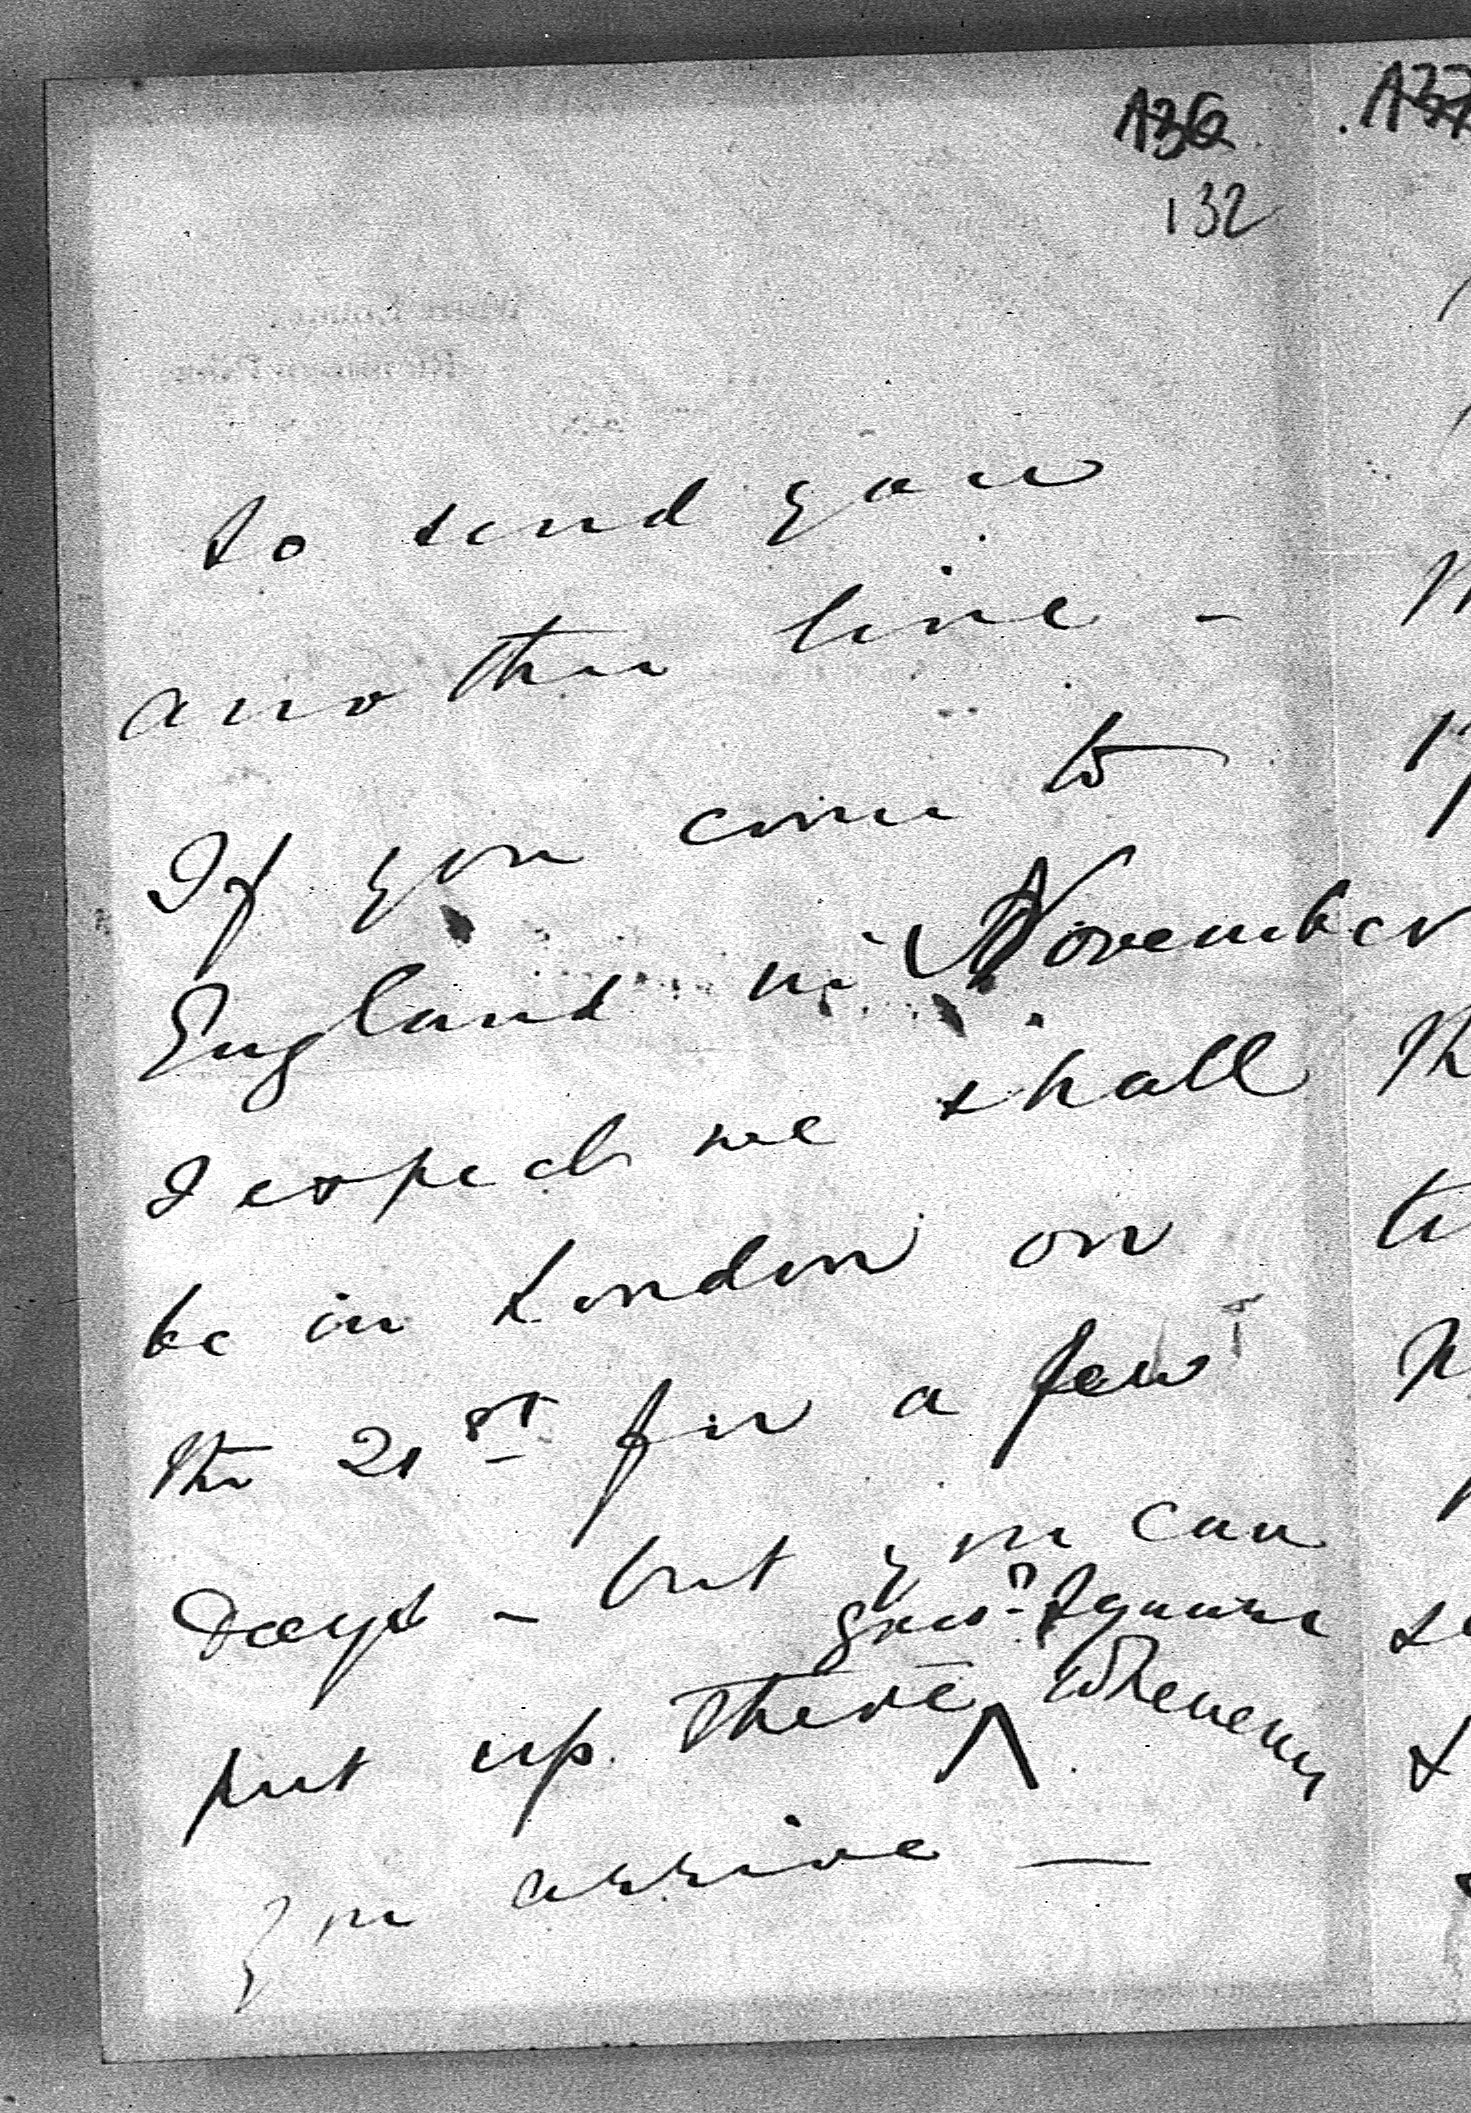 A36
132
to send you
another line -
If you come to
England in November
I expect we shall
be in London on
the 21st for a few
days - but you can
Gros.r Square
put up there ^ whenever
you arrive —